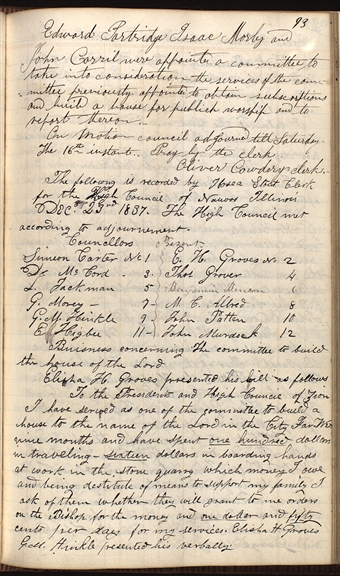 93
Edward Partridge Isaac Morley and
John Corril were appointe, a committee to
take into consideration the services of the com-
mittee previously appointe to obtain subscriptions
and build a house for publick worship and to
report thereon.
On Motion council adjourned till Saturday
The 16th instant. Pray by the clerk
Oliver Cowdery clerk.
The following is recorded by Hosea Stout Clerk
for the High Council of Nauvoo Illinois
Dec. 23rd 1837. The High Council met
according to adjournement.
Councillors Present
Simeon Carter No 1 E. H. Groves No 2
Dr. Mc Cord 3 Thos Grover 4
L. Jackman 5 Benjamin 6
G. Morey 7 M. C. Alred 8
G. M. Hinkle 9 John Patten 10
E. Higbee 11 John Murdock 12
Buisness concerning the committee to build
the house of the Lord
Elisha H. Groves presented his bill as follows
To the President and High Council of Zion
I have served as one of the committee to build a
house to the name of the Lord in the City Far West
nine months and have spent one hundred dollars
in traveling – sixteen dollars in boarding hands
at work in the stone quary which money I owe
and being destitute of means to support my family I
ask of them whether they will grant to me orders
on the Bishop for the money and one dollar and fifty
cents per day for my services. Elisha H Groves
Geo. Hinkle presented his verbally